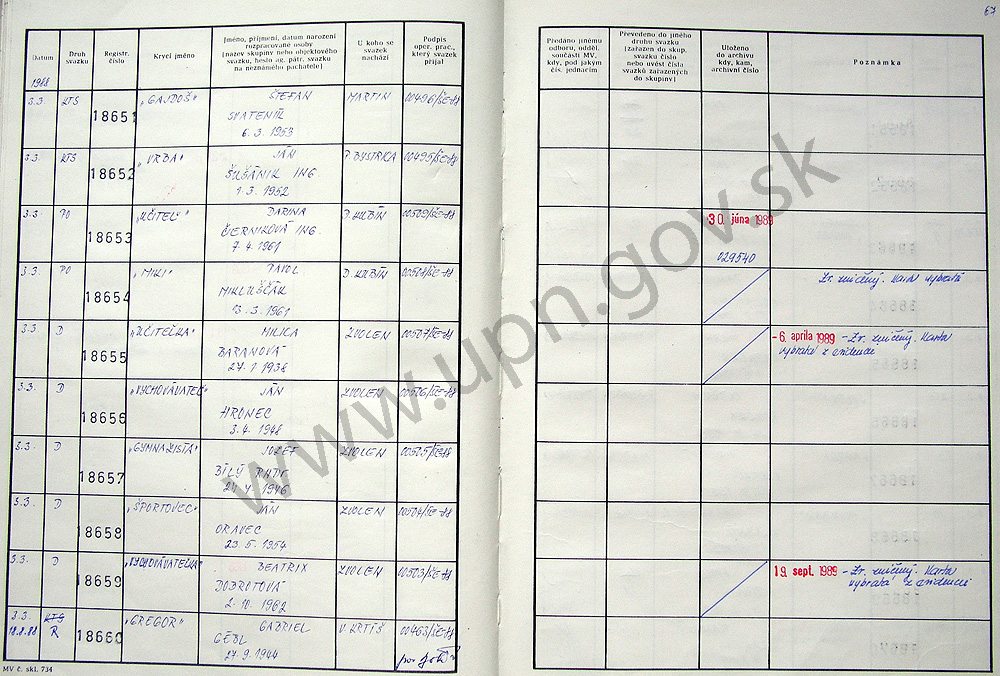 67
Datum
Druh svazku
Registr. číslo
Krycí jméno
Jméno, příjmení, datum narození
rozpracované osoby
(název skupiny nebo objektového
svazku, heslo ag. pátr. svazku
na neznámého pachatele)
U koho se
svazek
nachází
Podpis
oper. prac.,
který svazek
přijal
Předáno jinému
odboru, odděl.
součásti MV.
kdy, pod jakým
čís. jednacím
Převedeno do jiného
druhu svazku
(zařazen do skup.
svazku číslo
nebo uvést čísla
svazků zařazených
do skupiny)
Uloženo
do archivu
kdy, kam,
archivní číslo
Poznámka
1988
3.3. KTS 18651 „GAJDOŠ" ŠTEFAN MARTIN 00496/ŠE-88
SVATENÍK
6. 3. 1953
3.3. KTS 18652 „VRBA" JÁN P. BYSTRICA 00495/ŠE-88
ING
1. 3. 1952
3.3. PO 18653 „UČITEĽ" DARINA D. KUBÍN 00509/ŠE-88 30. júna 1989
ČERNIKOVÁ ING
7. 4. 1961 029540
3.3. PO 18654 „MIKI" PAVOL D. KUBÍN 00508/ŠE-88 Zv. zničený. Karta vybratá
MIKLUŠČÁK
3. 1961
3.3 D 18655 „UČITEĽKA" MILICA ZVOLEN 00507/ŠE-88 -6. apríla 1989 - Zv. zničený. Karta
BARANOVÁ vybratá z evidencie
27. 1 1938
3.3. D 18656 „VYCHOVÁVATEĽ" JÁN ZVOLEN 00506/ŠE-88
HRONEC
3. 4. 1948
3.3. D 18657 „GYMNAZISTA" JOZEF ZVOLEN 00505/ŠE-88
BÍLÝ
1946
3.3. D 18658 „ŠPORTOVEC" JÁN ZVOLEN 00504/ŠE-88
ORAVEC
23. 5. 1954
3.3. D 18659 „VYCHOVÁVATEĽKA" BEATRIX ZVOLEN 00503/ŠE-88 19. sept. 1989 - Zv. zničený. Karta
DOBROTOVÁ vybratá z evidencie
2. 10. 1962
3.3. KTS 18660 „GREGOR" GABRIEL V. KRTÍŠ 00463/ŠE-88
18.8.88 R
27. 9. 1944
MV č. skl. 734
www.upn.gov.sk